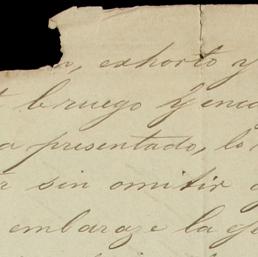 n, exhorto y
t bruego y enca
a presentado, lo
r sin omitir
embaraze la ef